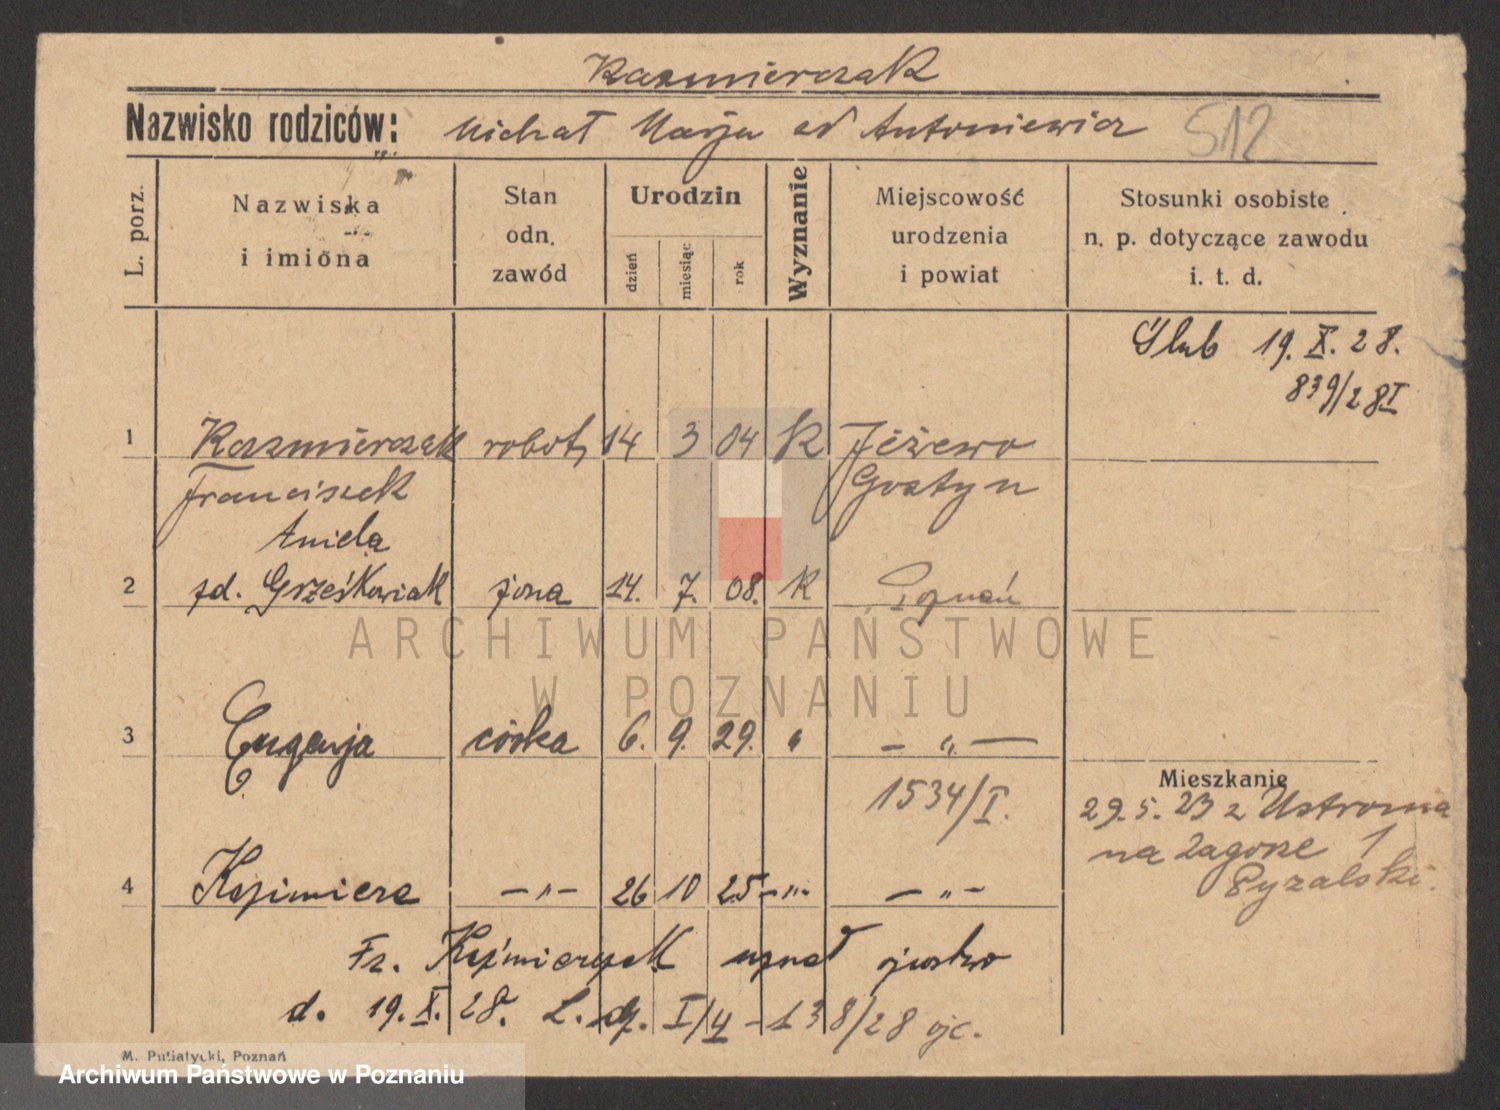 Kazmierczak
Nazwisko rodziców: Michał Marja od Antoniewicz 512
L. porz.
Nazwiska
i imiona
Stan
odn.
zawód
Urodzin
dzień
miesiąc
rok
Wyznanie
Miejscowość
urodzenia
i powiat
Stosunki osobiste
n. p. dotyczące zawodu
i. t. d.
Ślub 19. X. 28.
839/28 I
1 Kazmierczak robot. 14 3 04 K Jeżewo
Franciszek Gostyn
Aniela
2 zd. Grześkowiak żona 14. 7. 08. K Poznań
3 Eugenja córka 6. 9. 29. " — " —
1534/I.
Mieszkanie
29. 5. 23 z Ustronia
na Zagorze 1
Pyzalski.
4 Kazimiera — " — 26 10 25 - " - — " -
Fr. Kaźmierczak uznał ojcostwo
d. 19. X. 28. L. dz. I/4 - 138/28 ojc.
M. Putiatycki, Poznań
ARCHIWUM PAŃSTWOWE
W POZNANIU
Archiwum Państwowe w Poznaniu